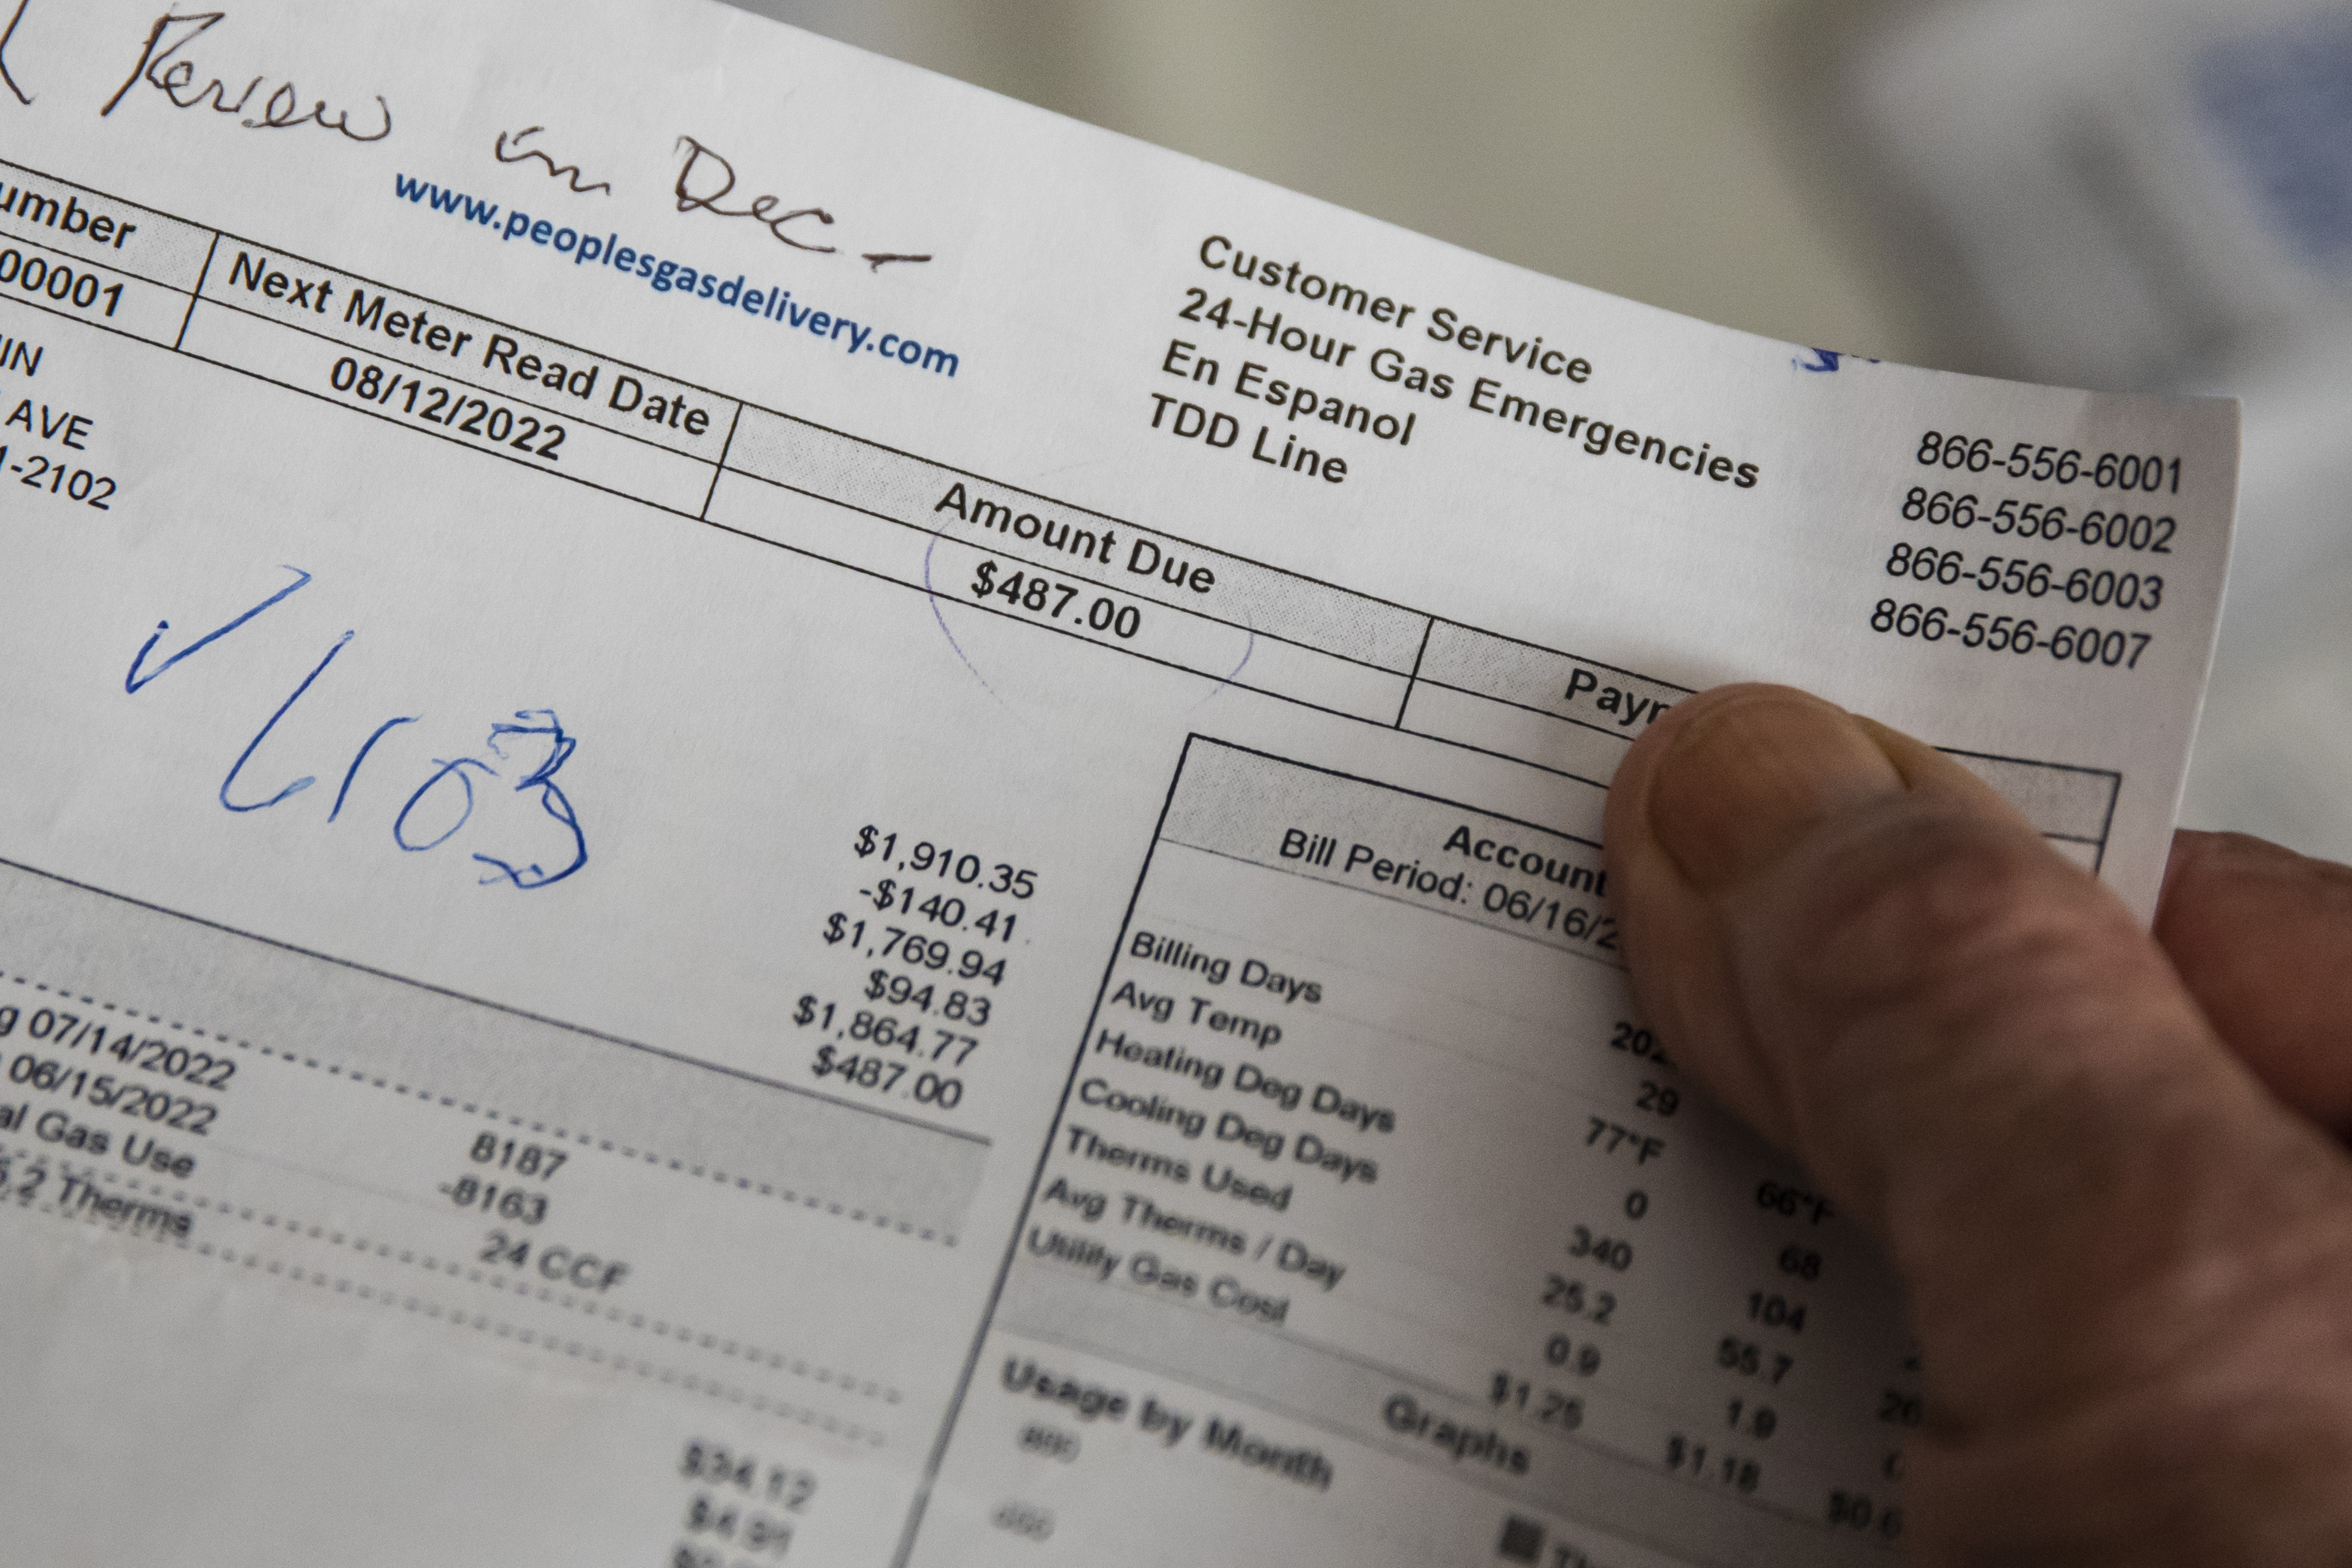 Review in Dec -
www.peoplesgasdelivery.com
Customer Service 866-556-6001
24-Hour Gas Emergencies 866-556-6002
En Espanol 866-556-6003
TDD Line 866-556-6007
umber Next Meter Read Date Amount Due Payr
00001 08/12/2022 $487.00
IN
AVE
1-2102
$1,910.35
-$140.41
$1,769.94
$94.83
$1,864.77
$487.00
g 07/14/2022 8187
06/15/2022 -8163
al Gas Use 24 CCF
5.2 Therms
$34.12
$4.91
Account
Bill Period: 06/16/2
202
Billing Days 29
Avg Temp 77°F 66°F
Heating Deg Days 0 68
Cooling Deg Days 340 104
Therms Used 25.2 55.7
Avg Therms / Day 0.9 1.9
Utility Gas Cost $1.25 $1.18 $0.6
Graphs
Usage by Month
800
600